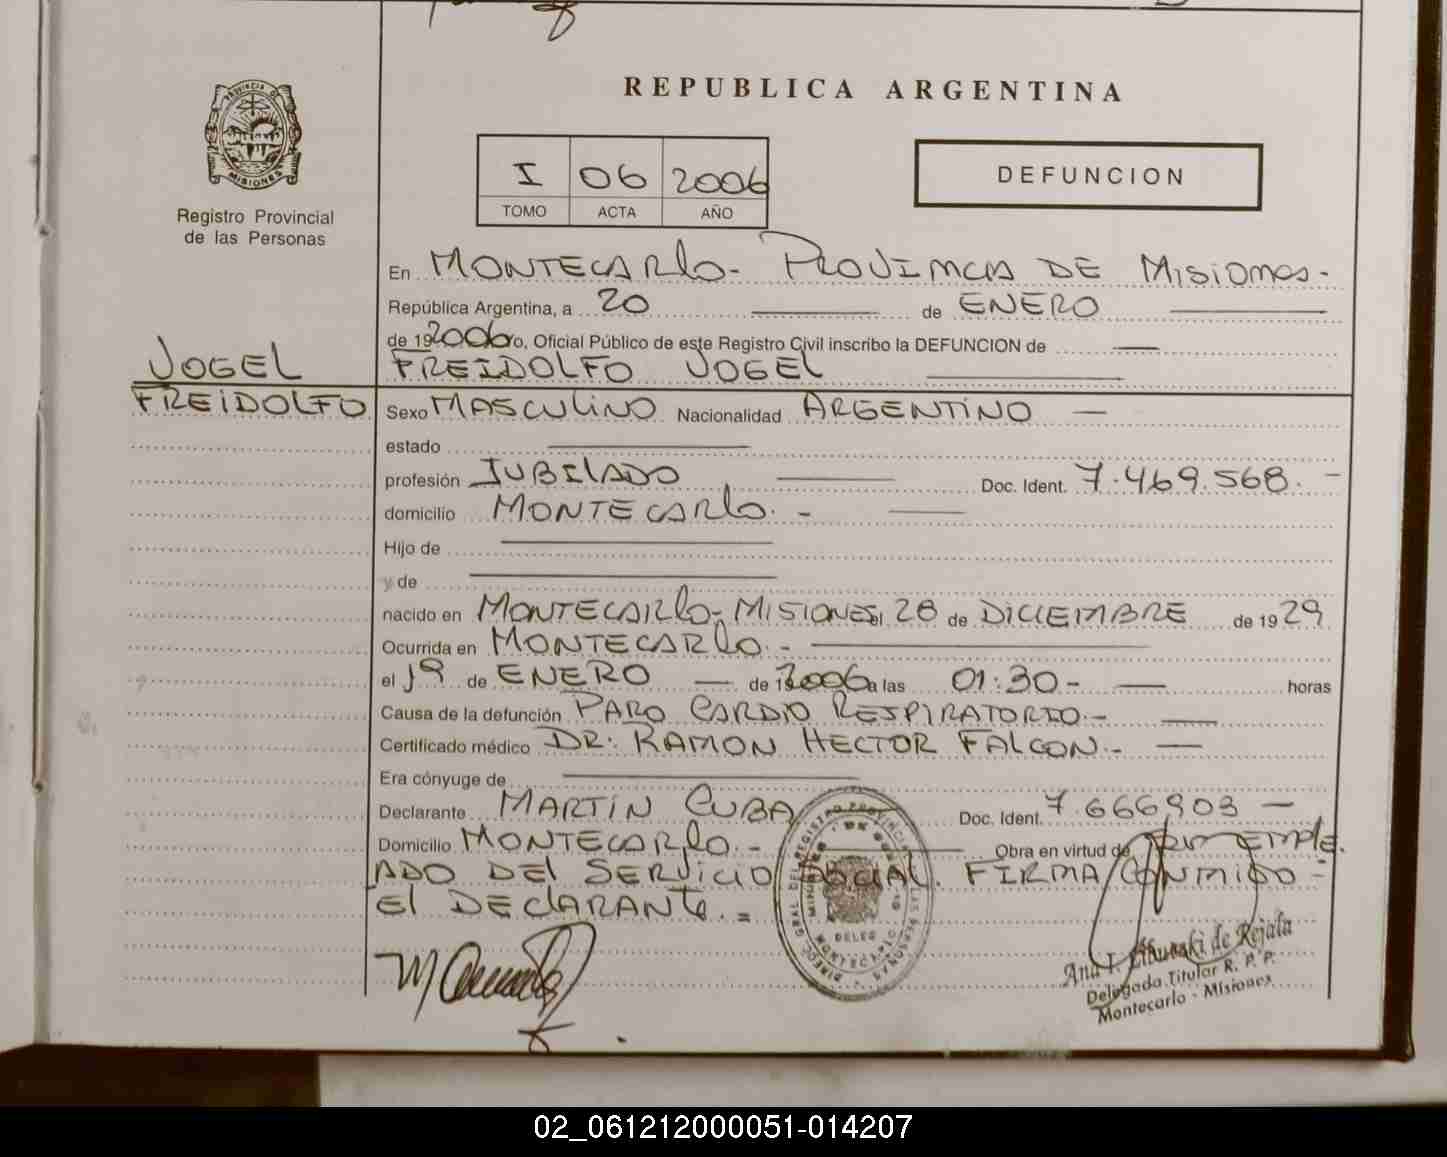 REPUBLICA ARGENTINA
PROVINCIA D
MISIONES
Registro Provincial
de las Personas
I 06 2006
TOMO ACTA AÑO
DEFUNCION
En MONTECARLO- PROVINCIA DE MISIONES-
República Argentina, a 20 de ENERO
de 19 2006 o, Oficial Público de este Registro Civil inscribo la DEFUNCION de
FREIDOLFO VOGEL
VOGEL
FREIDOLFO
Sexo MASCULINO Nacionalidad ARGENTINO —
estado
profesión JUBILADO Doc. Ident. 7.469.568. -
domicilio MONTECARLO. -
Hijo de
y de
nacido en MONTECARLO, MISIONES el 28 de DICIEMBRE de 1929
Ocurrida en MONTECARLO. -
el 19 de ENERO — de 2006 a las 01:30- — horas
Causa de la defunción PARO CARDIO RESPIRATORIO.- —
Certificado médico DR: RAMON HECTOR FALCON.- —
Era cónyuge de
Declarante MARTIN CUBA Doc. Ident. 7.666903 —
Domicilio MONTECARLO. - Obra en virtud de EMPLE.
ADO DEL SERVICIO SOCIAL. FIRMA CONMIGO -
El DEClARANTE. =
DELEG
MONTECARLO
Ana I. de Rejala
Delegada Titular R. P. P.
Montecarlo - Misiones
02_061212000051-014207